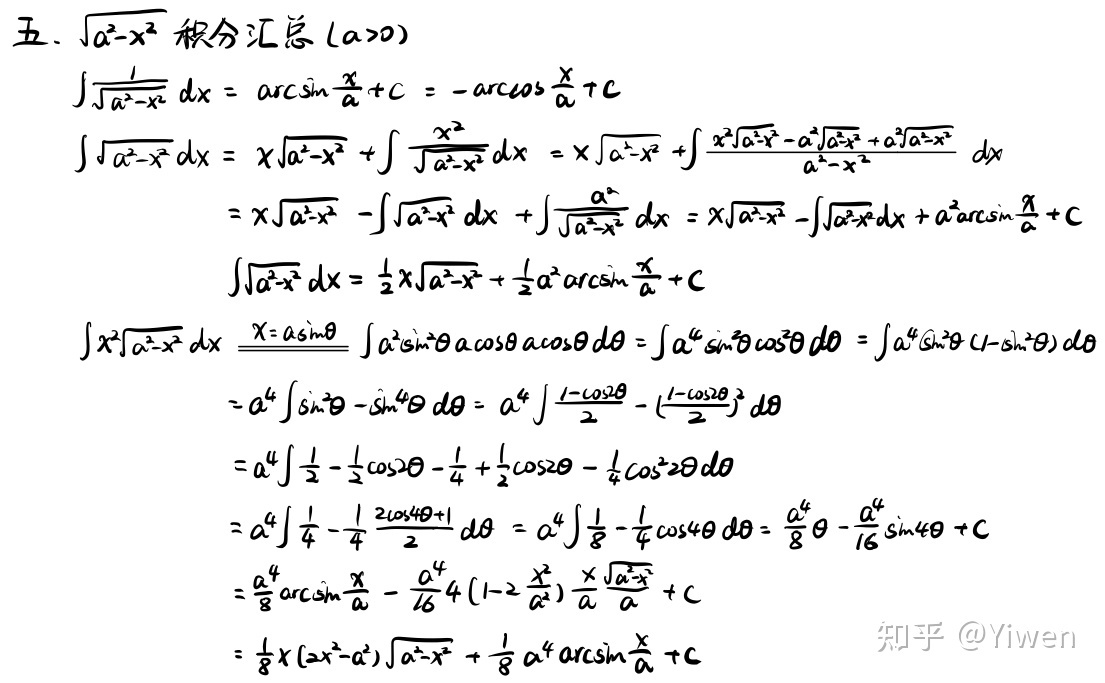 五. √(a²-x²) 积分汇总 (a>0)
∫ 1/√(a²-x²) dx = arcsin x/a + C = -arccos x/a + C
∫ √(a²-x²) dx = x√(a²-x²) + ∫ x²/√(a²-x²) dx = x√(a²-x²) + ∫ (x²√(a²-x²) - a²√(a²-x²) + a²√(a²-x²))/(a²-x²) dx
= x√(a²-x²) - ∫√(a²-x²) dx + ∫ a²/√(a²-x²) dx = x√(a²-x²) - ∫√(a²-x²) dx + a² arcsin x/a + C
∫√(a²-x²) dx = 1/2 x√(a²-x²) + 1/2 a² arcsin x/a + C
∫ x²√(a²-x²) dx x=asinθ ∫ a² sin²θ a cosθ a cosθ dθ = ∫ a⁴ sin²θ cos²θ dθ = ∫ a⁴ sin²θ (1-sin²θ) dθ
= a⁴ ∫ sin²θ - sin⁴θ dθ = a⁴ ∫ (1-cos2θ)/2 - ((1-cos2θ)/2)² dθ
= a⁴ ∫ 1/2 - 1/2 cos2θ - 1/4 + 1/2 cos2θ - 1/4 cos²2θ dθ
= a⁴ ∫ 1/4 - 1/4 (2cos4θ+1)/2 dθ = a⁴ ∫ 1/8 - 1/4 cos4θ dθ = a⁴/8 θ - a⁴/16 sin4θ + C
= a⁴/8 arcsin x/a - a⁴/16 4 (1-2 x²/a²) x/a √(a²-x²)/a + C
= 1/8 x(2x²-a²)√(a²-x²) + 1/8 a⁴ arcsin x/a + C
知乎 @Yiwen